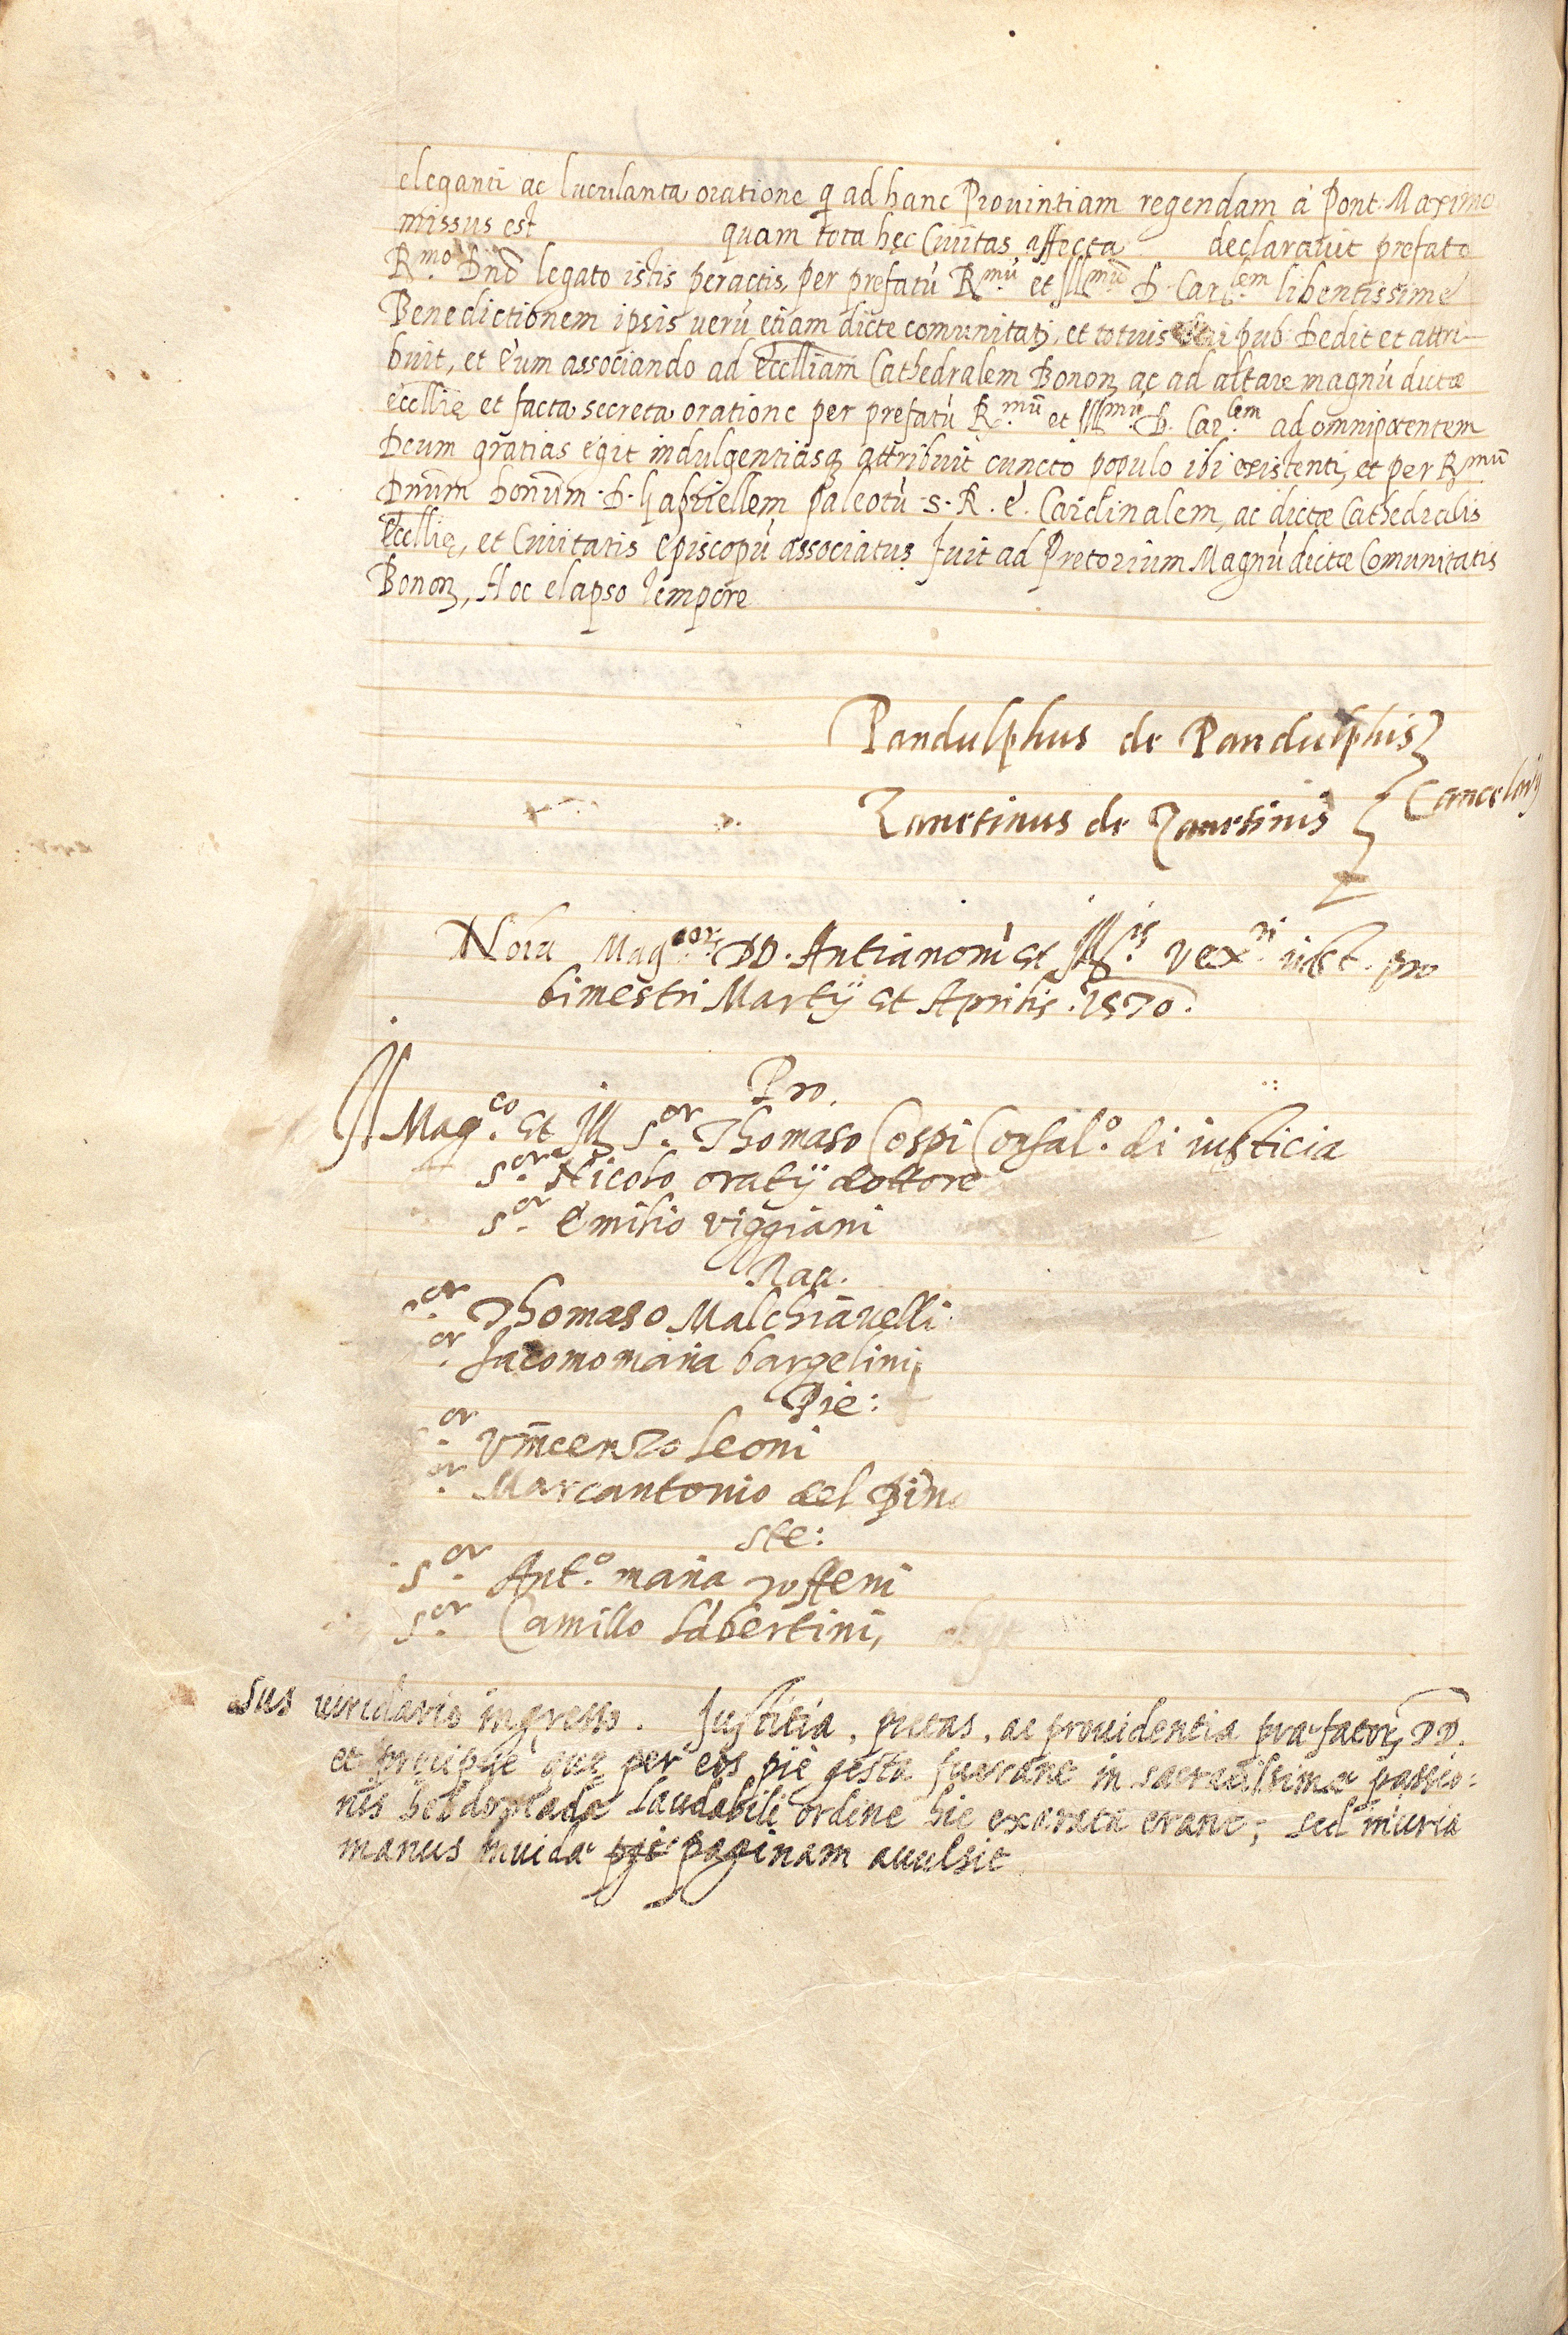 eleganti ac luculanta oratione q ad hanc Prouintiam regendam à Pont. Maximo
missus est quam tota hec Ciuitas affecta declarauit prefato
R.mo Dnō legato istis peractis, per prefatū R.mū et Ill.mū D. Car.lem libentissime
Benedictionem ipsis uerū etiam dicte comunitatj, et totius rei pub. Dedit et attri-
buit, et eum associando ad Ecclliam Cathedralem Bonon̄ ac ad altare magnū dictæ
eccllię et facta secreta oratione per prefatū R.mū et Ill.mū D. Car.lem ad omnipotentem
Deum gratias egit indulgentiasq attribuit cuncto populo ibi existenti, et per R.mū
Dnūm bonūm D. Gabriellem paleotū S. R. E. Cardinalem, ac dictæ Cathedralis
Eccllię, et Ciuitatis episcopū associatus fuit ad Pretorium Magnū dictæ Comunitatis
Bonon̄, Hoc elapso tempore
Pandulphus de Pandulphis
Zanetinus de Zanetinis Cancelarij
Nota Mag.cor DD. Antianorū et Ill.is Vex.ri iust. pro
bimestri Martij et Aprilis .1570.
Pro.
Il Mag.co et Ill S.or Thomaso Cospi Confal.o di iusticia
S.or Nicolo oratij dottore
S.or Emilio viggiani
Rau.
or Thomaso Malchiauelli
or Iacomomaria bargelini
Pie:
or Vincenzo Leoni
or Marcantonio del Pino
Ste:
S.or Ant.o maria roffeni
S.or Camillo Labertini,
Sus uiridario ingresso. Justitia, pietas, ac prouidentia præfator DD.
et precipue quę per eos piè gesta fuerant in sacratissimæ passio:
nis hebdomada laudabili ordine hic exarata erant; sed iniuria
manus inuida paginam auulsit